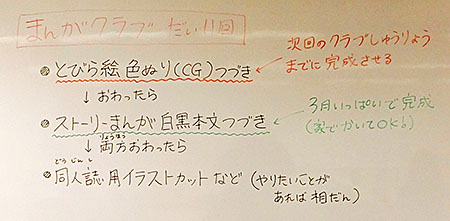 まんがクラブ だい11回
●とびら絵 色ぬり(CG)つづき
次回のクラブしゅうりょう
までに完成させる
↓おわったら
●ストーリーまんが白黒本文つづき
3月いっぱいで完成
(家でかいてOK!)
りょうほう
↓両方おわったら
どうじんし
●同人誌用イラストカットなど(やりたいことが
あれば相だん)